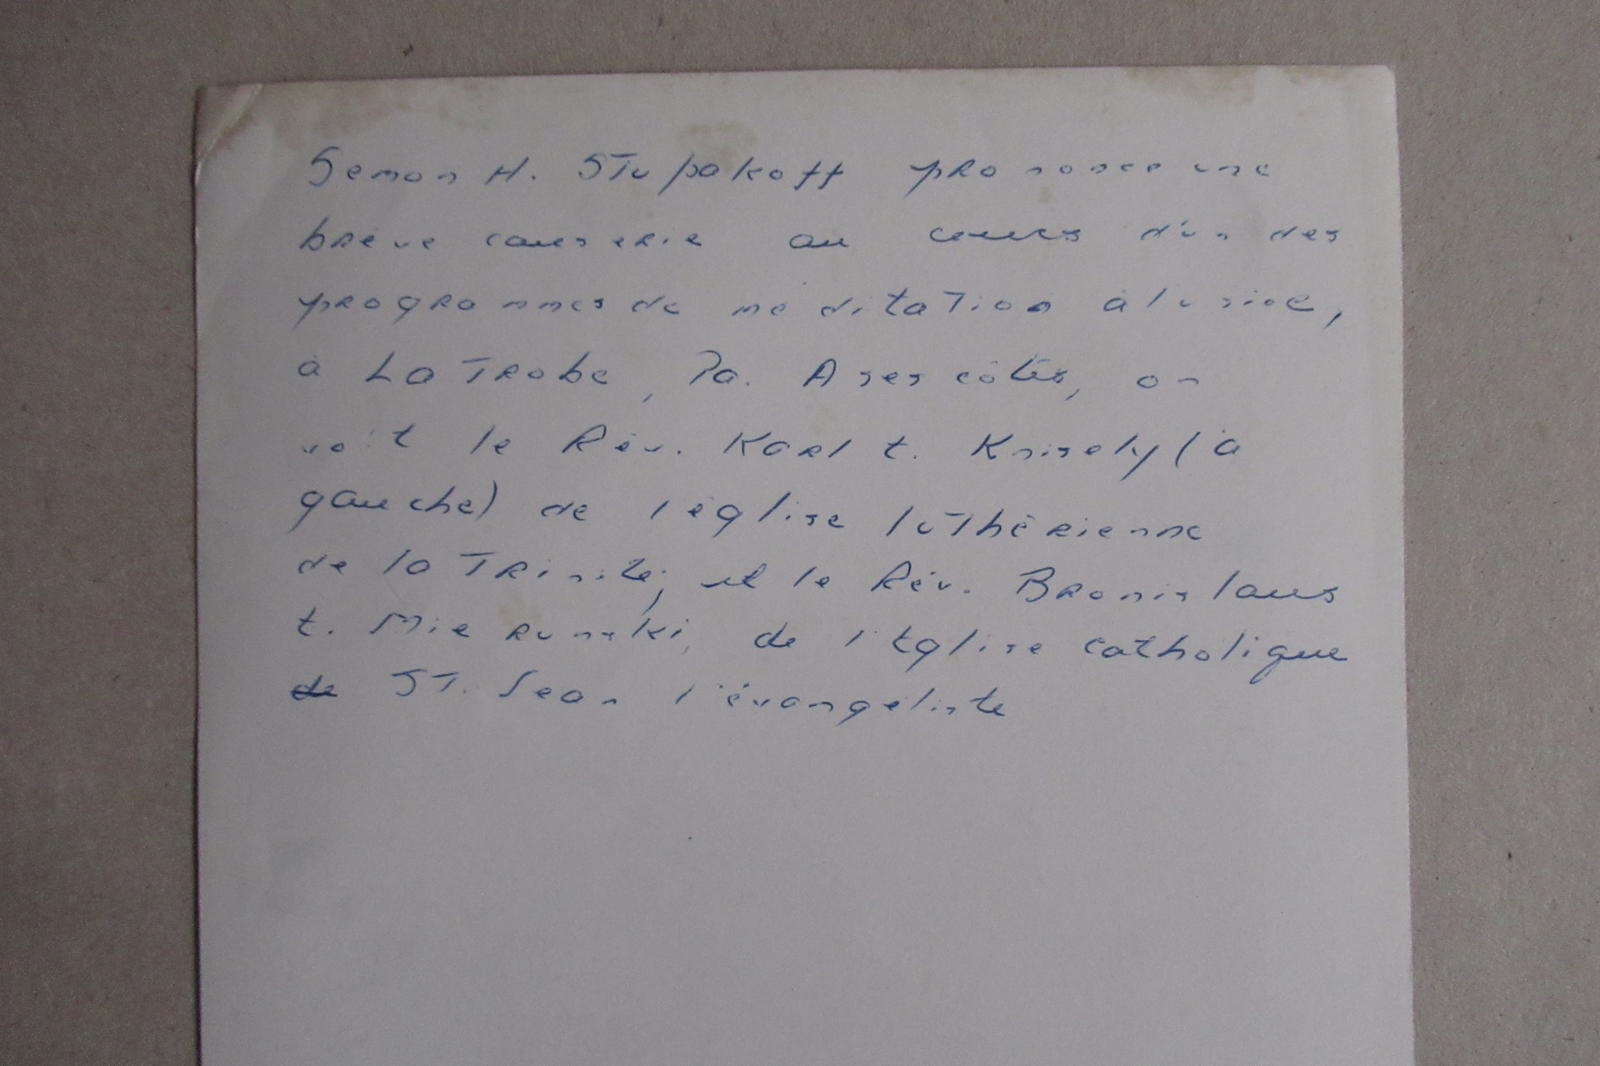 Semon H. Stupakoff prononce une
brève causerie au cours d'un des
programmes de méditation à l'usine,
à LaTrobe, Pa. A ses côtés, on
voit le Rév. Karl E. Knisely (à
gauche) de l'église luthérienne
de la Trinité, et le Rév. Bronislaus
E. Mierunski, de l'Eglise catholique
de St. Jean l'évangéliste